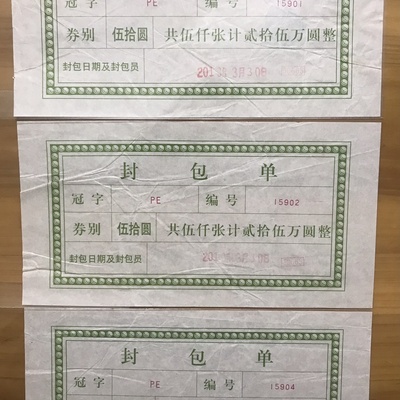 冠字 PE 编号 15901
券别 伍拾圆 共伍仟张计贰拾伍万圆整
封包日期及封包员
封包单
冠字 PE 编号 15902
券别 伍拾圆 共伍仟张计贰拾伍万圆整
封包日期及封包员
封包单
冠字 PE 编号 15904